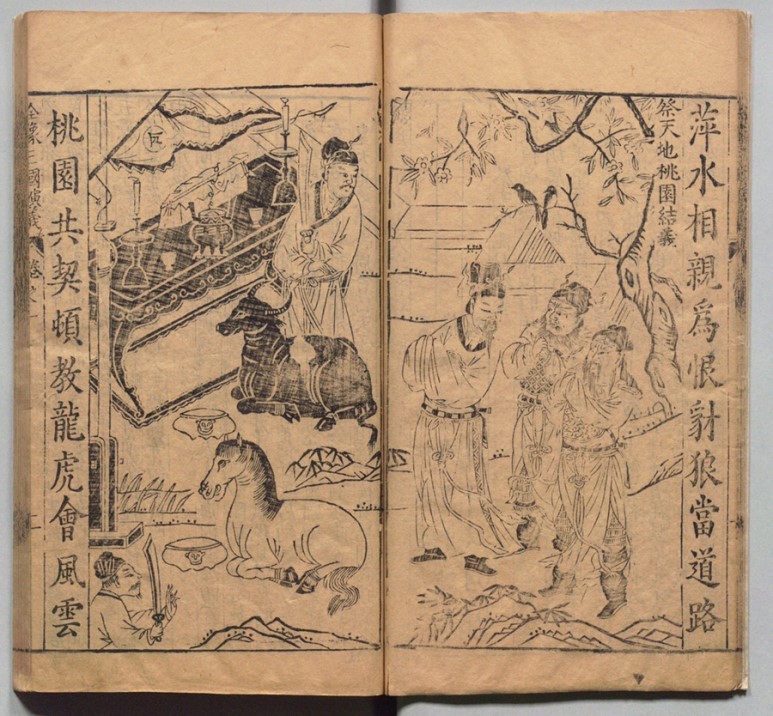 萍水相親為恨豺狼當道路
祭天地桃園結義
桃園共契頓教龍虎會風雲
全像三國演義